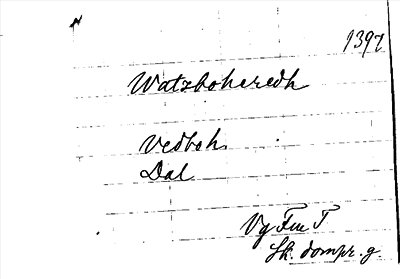 1397
Watzbokeredh
Vedbok
Dal
Vg Fru T
Sk. dompr. g.